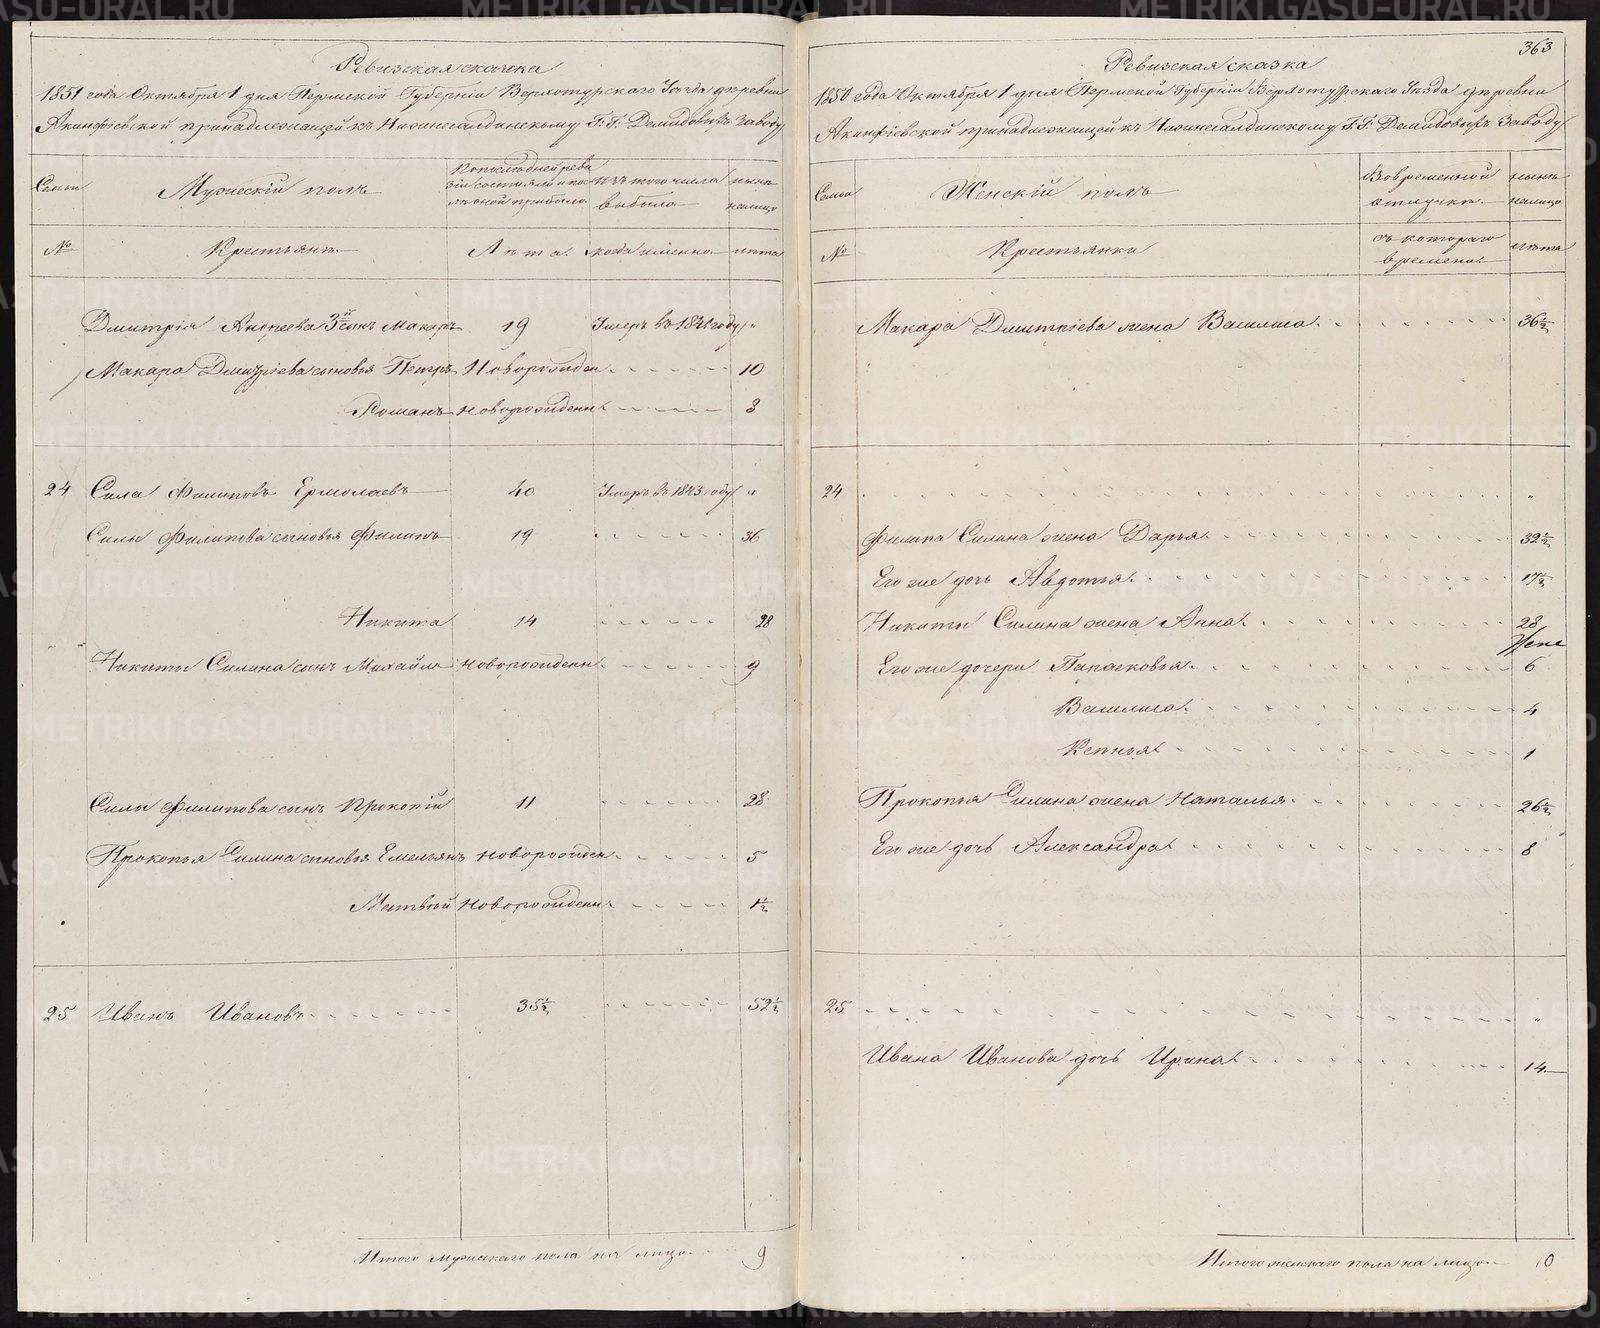 Ревизская сказка
1851 года Октября 1 дня Пермской Губернiи Верхотурскаго Уѣзда деревни
Акинфiевской принадлежащей къ Нижнесалдинскому Г.Г. Демидовыхъ Заводу
Семьи
Мужескiй полъ
По последней ревизiи состояло и после оной прибыло
Изъ того числа выбыло
Нынѣ налицо
№
Крестьяне
Лѣта
Когда именно
лѣта
Дмитрiя Андреева 3й сынъ Макаръ 19 Умеръ въ 1841 году "
Макара Дмитрiева сыновья Петръ Новорожден. 10
Романъ Новорожденн. 3
24 Сила Филиповъ Ермолаевъ 40 Умеръ въ 1843 году "
Силы Филипова сыновья Филипъ 19 36
Никита 14 28
Никиты Силина сынъ Михайло новорожденн. 9
Силы Филипова сынъ Прокопiй 11 28
Прокопья Силина сыновья Емельянъ новорожден. 5
Матвѣй Новорожденн. 1½
25 Иванъ Ивановъ 35½ 52½
Итого мужескаго пола на лицо 9
363
Ревизская сказка
1850 года Октября 1 дня Пермской Губернiи Верхотурскаго Уѣзда деревни
Акинфiевской принадлежащей къ Нижнесалдинскому Г.Г. Демидовыхъ Заводу
Семьи
Женскiй полъ
Во временной отлучкѣ
Нынѣ налицо
№
Крестьянки
съ котораго времени
лѣта
Макара Дмитрiева жена Василиса 36½
24 "
Филипа Силина жена Дарья 32½
Его же дочь Авдотья 17½
Никиты Силина жена Анна 28
Его же дочери Парасковья 6
Василиса 4
Ксенья 1
Прокопья Силина жена Наталья 26½
Его же дочь Александра 8
25 "
Ивана Иванова дочь Ирина 14
Итого женскаго пола на лицо 10
METRIKI.GASO-URAL.RU